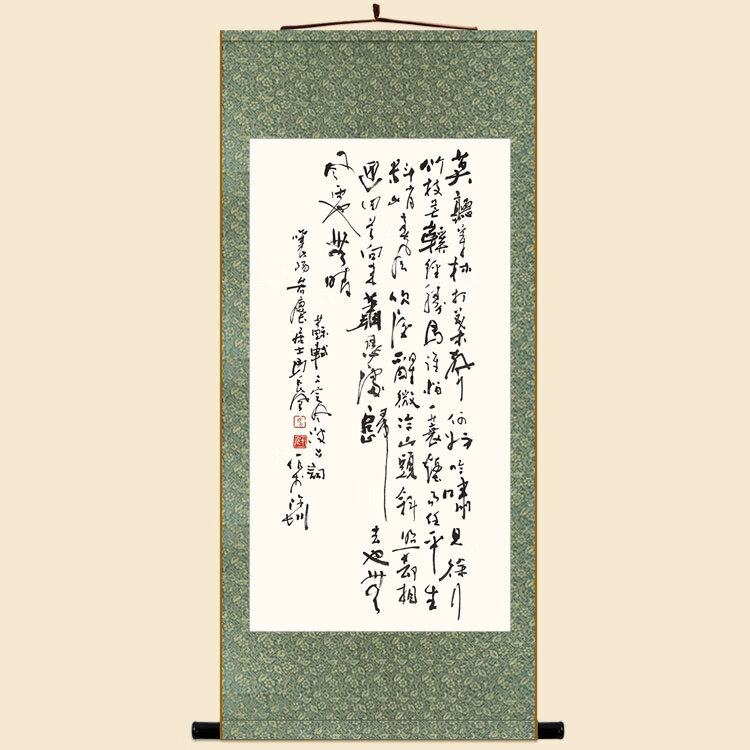 莫聽穿林打葉聲何妨吟嘯且徐行
竹杖芒鞋輕勝馬誰怕一蓑煙雨任平生
料峭春風吹酒醒微冷山頭斜照卻相
迎回首向來蕭瑟處歸去也無
風雨也無晴
蘇軾之定風波書詞